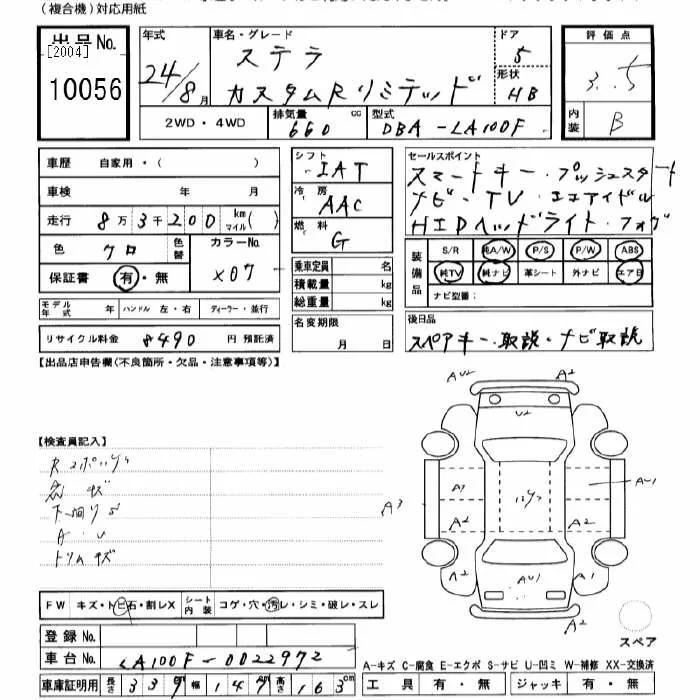 (複合機)対応用紙
出品No.
[2004]
10056
年式 車名・グレード ドア 評価点
24/8月 ステラ 5 3.5
カスタムRリミテッド 形状 HB
2WD・4WD 排気量 660 cc 型式 DBA-LA100F 内装 B
車歴 自家用・( )
車検 年 月
走行 8万3千200 km マイル( )
色 クロ 色替 カラーNo. X07
保証書 有・無
モデル年式 年 ハンドル 左・右 ディーラー・並行
リサイクル料金 8490 円 預託済
シフト IAT
冷房 AAC
燃料 G
乗車定員 名
積載量 kg
総重量 kg
名変期限
月 日
セールスポイント
スマートキー・プッシュスタート
ナビ・TV・エコアイドル
HIDヘッドライト・フォグ
装備品 S/R 純A/W P/S P/W ABS
純TV 純ナビ 革シート 外ナビ エアB
ナビ型番:
後日品
スペアキー・取説・ナビ取説
【出品店申告欄(不良箇所・欠品・注意事項等)】
【検査員記入】
キズ
A・U
トリムキズ
AU2 A2
U2
A3 A1 AU1
A2 A2
A2 AU1 A1
A2
スペア
FW キズ・トビ石・割レX シート内装 コゲ・穴・汚レ・シミ・破レ・スレ
登録No.
車台No. LA100F-0022972
車庫証明用 長さ 339 幅 147 高さ 163 cm
A-キズ C-腐食 E-エクボ S-サビ U-凹ミ W-補修 XX-交換済
工具 有・無 ジャッキ 有・無